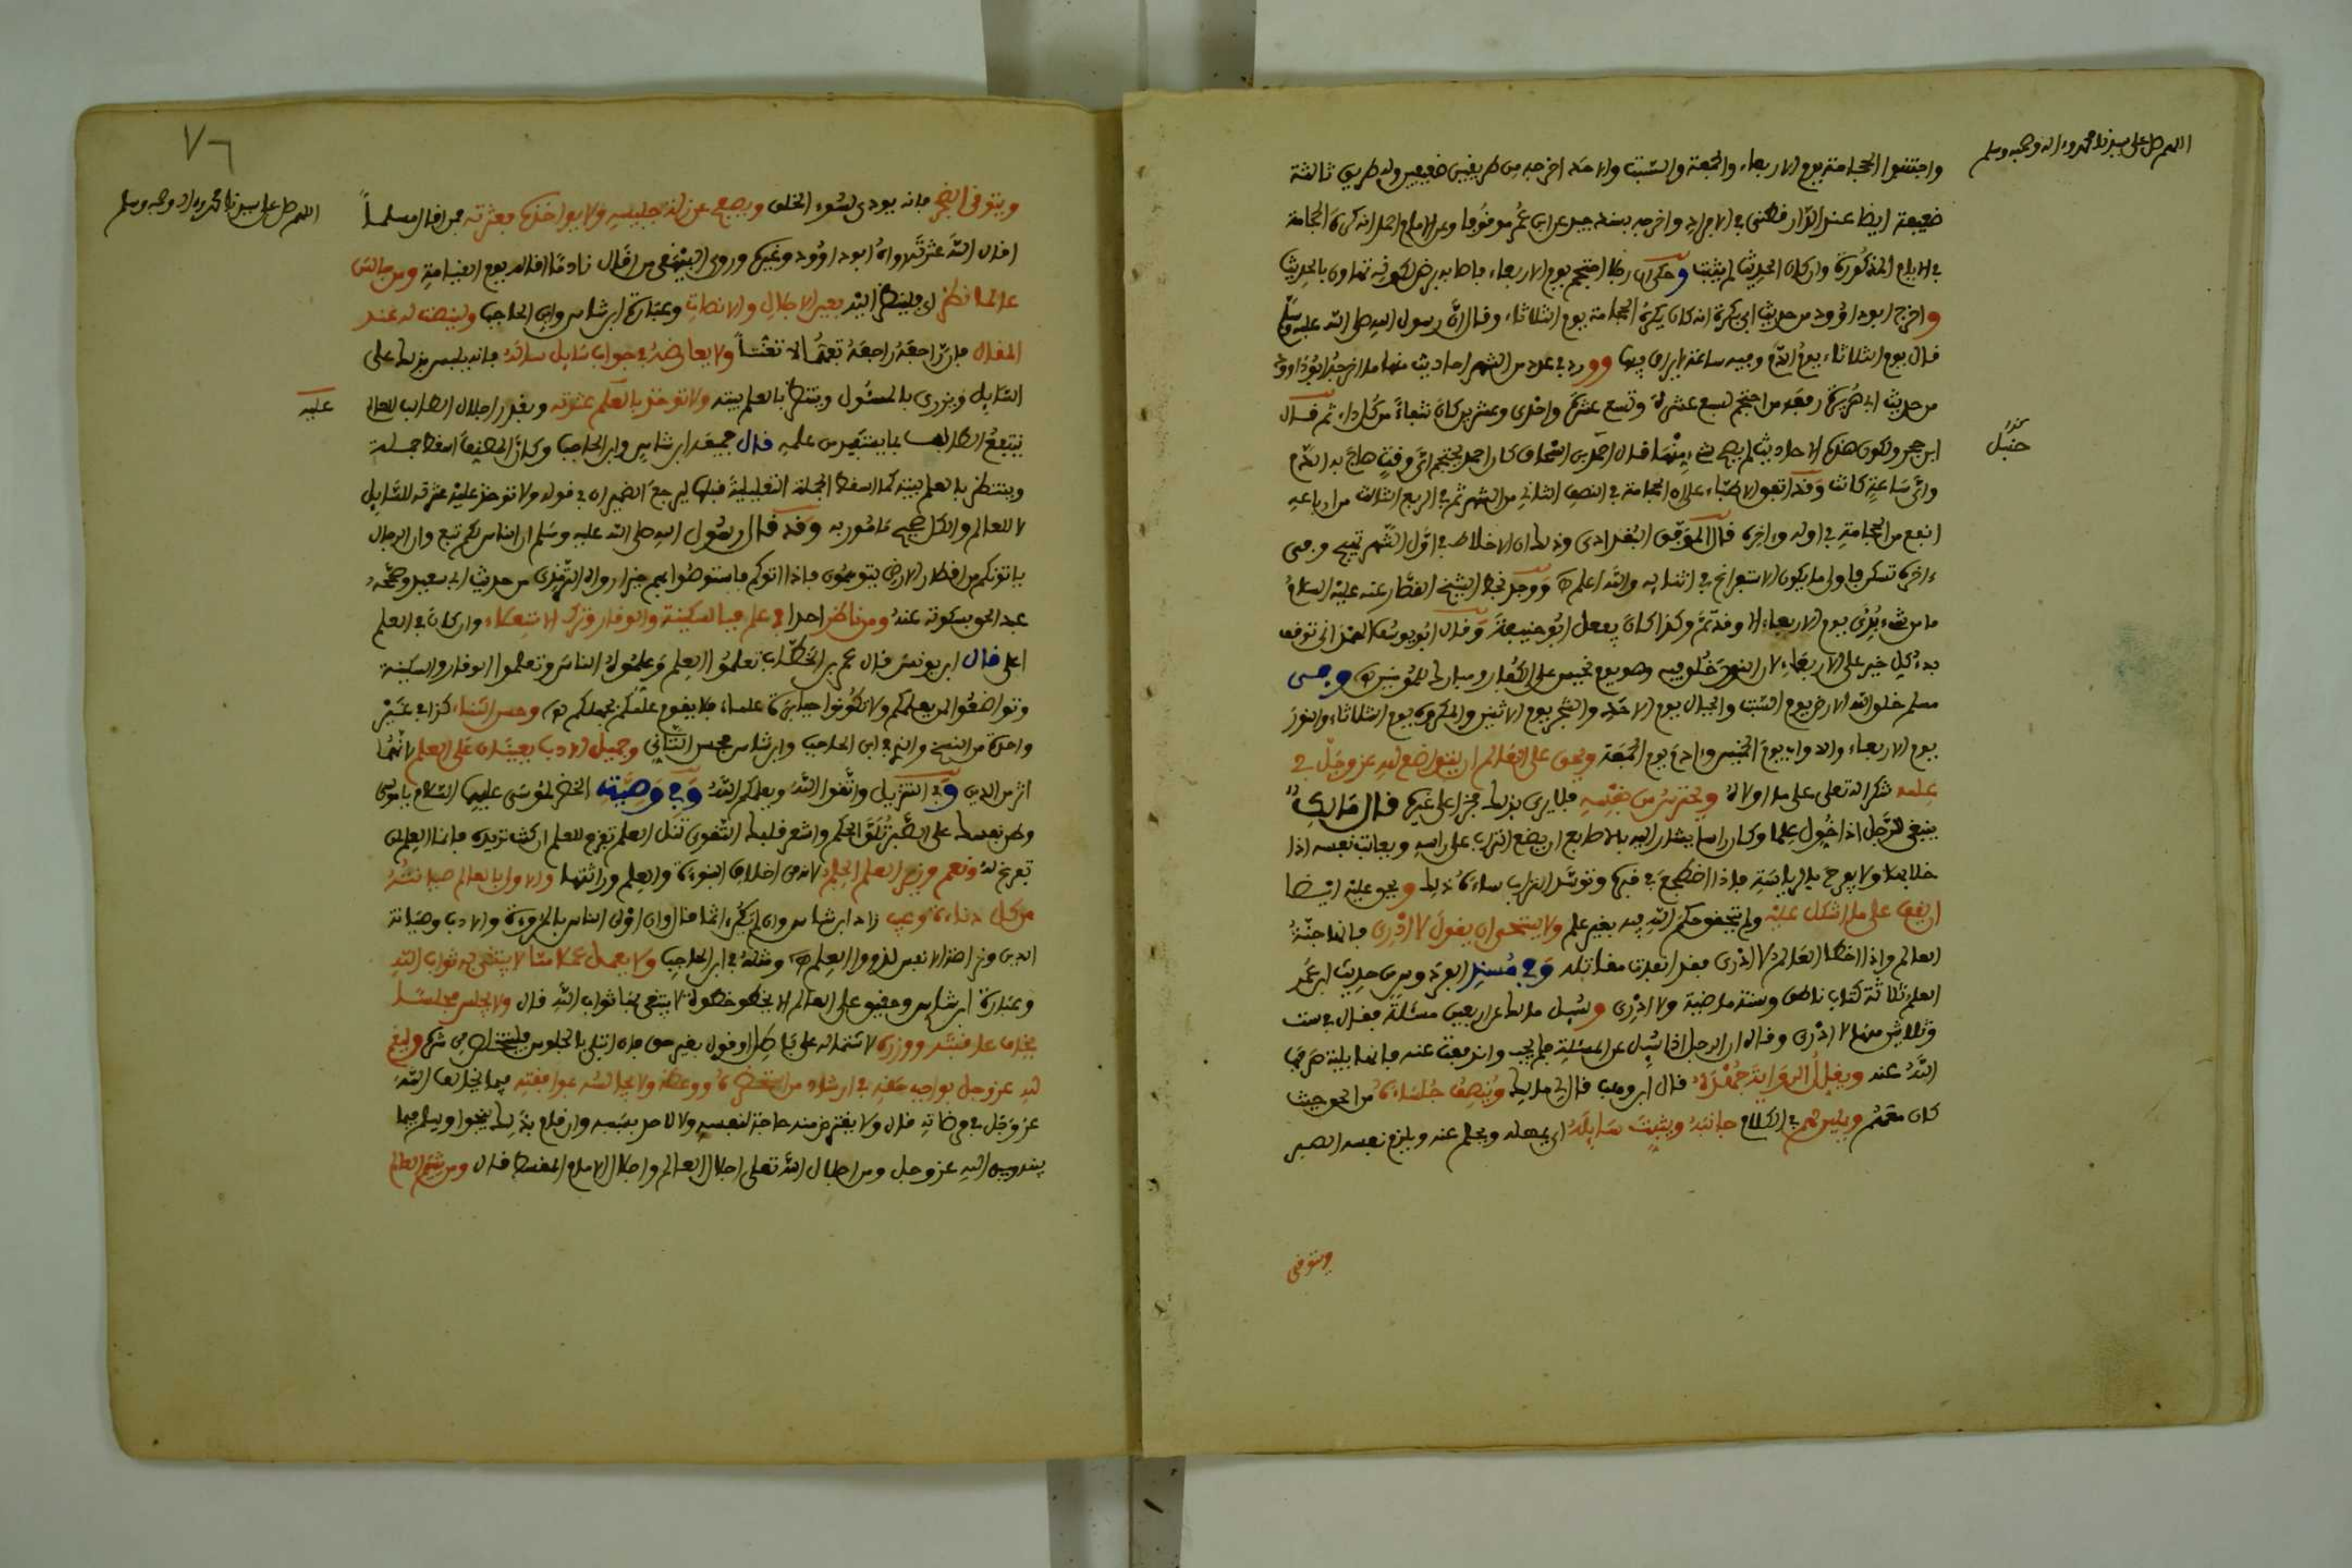 اللهم صل على سيدنا محمد وءاله وصحبه وسلم
واجتنبوا الحجامة يوم الاربعاء والجمعة والسبت والاحد اخرجه من طريقين ضعيفين وله طريق ثالثة
ضعيفة ايضا عند الدار قطني في الافراد واخرجه بسند جيد عن ابن عمر موقوفا وعن الامام احمد انه كره الحجامة
في الايام المذكورة وان كان الحديث لم يثبت وحكى ان رجلا احتجم يوم الاربعاء فاصابه برص لكونه تهاون بالحديث
واخرج ابو داوود من حديث ابي بكرة انه كان يكره الحجامة يوم الثلاثاء وقال ان رسول الله صلى الله عليه وسلم
قال يوم الثلاثاء يوم الدم وفيه ساعة لا يرقى فيها وورد في عدد من الشهر احاديث منها ما اخرجه ابو داوود
من حديث ابي هريرة رفعه من احتجم لسبع عشرة وتسع عشرة واحدى وعشرين كان شفاء من كل داء ثم قال
ابن حجر ولكون هذه الاحاديث لم يصح شيء منها قال احمد بن اسحاق كان احمد يحتجم اي وقت هاج به الدم
حنبل
واي ساعة كانت وقد اتفق الاطباء على ان الحجامة في النصف الثاني من الشهر ثم في الربع الثالث من ارباعه
انفع من الحجامة في اوله وءاخره قال الموفق البغدادي وذلك ان الاخلاط في اول الشهر تهيج وفي
ءاخره تسكن فاولى ما يكون الاستفراغ في اثنائه والله اعلم ووجد بخط الشيخ القصار عنه عليه السلام
ما من شيء بدئ يوم الاربعاء الا وقد تم وكذا كان يفعل ابو حنيفة وقال ابو يوسف الهمداني توقف
بدء كل خير على الاربعاء لان النور خلق فيه وهو يوم نحس على الكفار ومبارك للمؤمنين وفي
مسلم خلق الله الارض يوم السبت والجبال يوم الاحد والشجر يوم الاثنين والمكروه يوم الثلاثاء والنور
يوم الاربعاء والدواب يوم الخميس وءادم يوم الجمعة ويحق على العالم ان يتواضع لله عز وجل في
علمه شكرا له تعلى على ما اولاه ويحترس من نفسه فلا يرى بذلك فخرا على غيره قال مالك
ينبغي للرجل اذا خول علما وكان راسا يشار اليه بالاصابع ان يضع التراب على راسه ويعاتب نفسه اذا
خلا بها ولا يفرح بالرياسة فاذا اضطجع في قبره وتوسد التراب ساءه ذلك ويحق عليه ايضا
ان يقف على ما اشكل عليه ولم يتحقق حكم الله فيه بغير علم ولا يستحي ان يقول لا ادري فانها جنة
العالم واذا اخطا العالم لا ادري فقد اصيبت مقاتله وفي مسند الفردوس من حديث ابن عمر
العلم ثلاثة كتاب ناطق وسنة ماضية ولا ادري وسئل مالك عن اربعين مسئلة فقال في ست
وثلاثين منها لا ادري وقال ان الرجل اذا سئل عن المسئلة فلم يجب واندفعت عنه فانما بلية صرفها
الله عنه ويقلل الرواية جهده قال ابن وهب قال لي مالك وينصف جلساءه من الحق حيث
كان معهم ويلين لهم في الكلام جانبه ويثبت سايله اي يمهله ويحلم عنه ويلزم نفسه الصبر
ويتوقى
٧٦
اللهم صل على سيدنا محمد وءاله وصحبه وسلم
ويتوقى الضجر فانه يودي لسوء الخلق ويصفح عن زلة جليسه ولا يواخذه بعثرته فمن اقال مسلما
اقال الله عثرته رواه ابو داوود وغيره وروى البيهقي من اقال نادما اقاله يوم القيامة ومن جالس
عالما نظر اي فلينظر اليه بعين الاجلال والانصات وعبارة ابن شاس وابن الحاجب ولينصت له عند
المقال فان راجعه راجعه تفهما لا تعنتا ولا يعارضه في جواب سايل ساله فانه يلبس بذلك على
السايل ويزري بالمسئول وينتظر بالعلم بيته ولا توخذ بالعلم عثرته وبقدر اجلال الطالب للعالم
عليه
ينتفع الطالب بما يستفيد من علمه قال جميعه ابن شاس وابن الحاجب وكان المصنف اسقط جملة
وينتظر بالعلم بيته كما اسقط الجملة التعليلية قبلها ليرجع الضمير ان في قوله ولا توخذ عليه عثرته للسايل
لا للعالم والكل صحيح مامور به وقد قال رسول الله صلى الله عليه وسلم ان الناس لكم تبع وان الرجال
ياتونكم من اقطار الارض يتفقهون فاذا اتوكم فاستوصوا بهم خيرا رواه الترمذي من حديث ابي سعيد وصححه
عبد الحق بسكوته عنه ومن ناظر احدا في علم فبالسكينة والوقار وترك الاستعلاء وان كان في العلم
اعلى قال ابن يونس قال عمر بن الخطاب تعلموا العلم وعلموه الناس وتعلموا الوقار والسكينة
وتواضعوا لمن يعلمكم ولا تكونوا جبابرة علماء فلا يقوم علمكم بجهلكم وحسن الثناء كذا في غير
واحدة من النسخ والذي في ابن الحاجب وابن شاس فحسن التاني وجميل الادب يعينان على العلم لانهما
اثر من الدين وفي التنزيل واتقوا الله ويعلمكم الله وفي وصية الخضر لموسى عليهما السلام يا موسى
وطن نفسك على الصبر تلق الحكم واشعر قلبك التقوى تنل العلم تفرغ للعلم ان كنت تريده فانما العلم لمن
تفرغ له ونعم وزير العلم الحلم لانه من اخلاق النبوءة والعلم وراثتها والاولى بالعالم صيانته
من كل دناءة وعيب زاد ابن شاس وان لم يكن اثما فان اولى الناس بالمروءة والادب وصيانة
الدين ونزاهة الانفس لذووا العلم ومثله في ابن الحاجب ولا يعمل عملا مما لا يبتغى به ثواب الله
وعبارة ابن شاس وحقيق على العالم الا يخطو خطوة لا يبتغي بها ثواب الله قال ولا يجلس مجلسا
يخاف عاقبته ووزره لاشتماله على باطل او قول بغير حق فان ابتلي بالجلوس فليتحفظ من شره وليقم
لله عز وجل بواجب حقه في ارشاد من استحضره ووعظه ولا يجالسه بموافقته فيما يخالف الله
عز وجل في مرضاته قال ولا يعترض منه حاجة لنفسه ولا لاحد بسببه وان قام بذلك نجوا ويسلم فيما
بينه وبين الله عز وجل ومن اجلال الله تعلى اجلال العالم واجلال الامام المقسط قال ومن شيم العالم